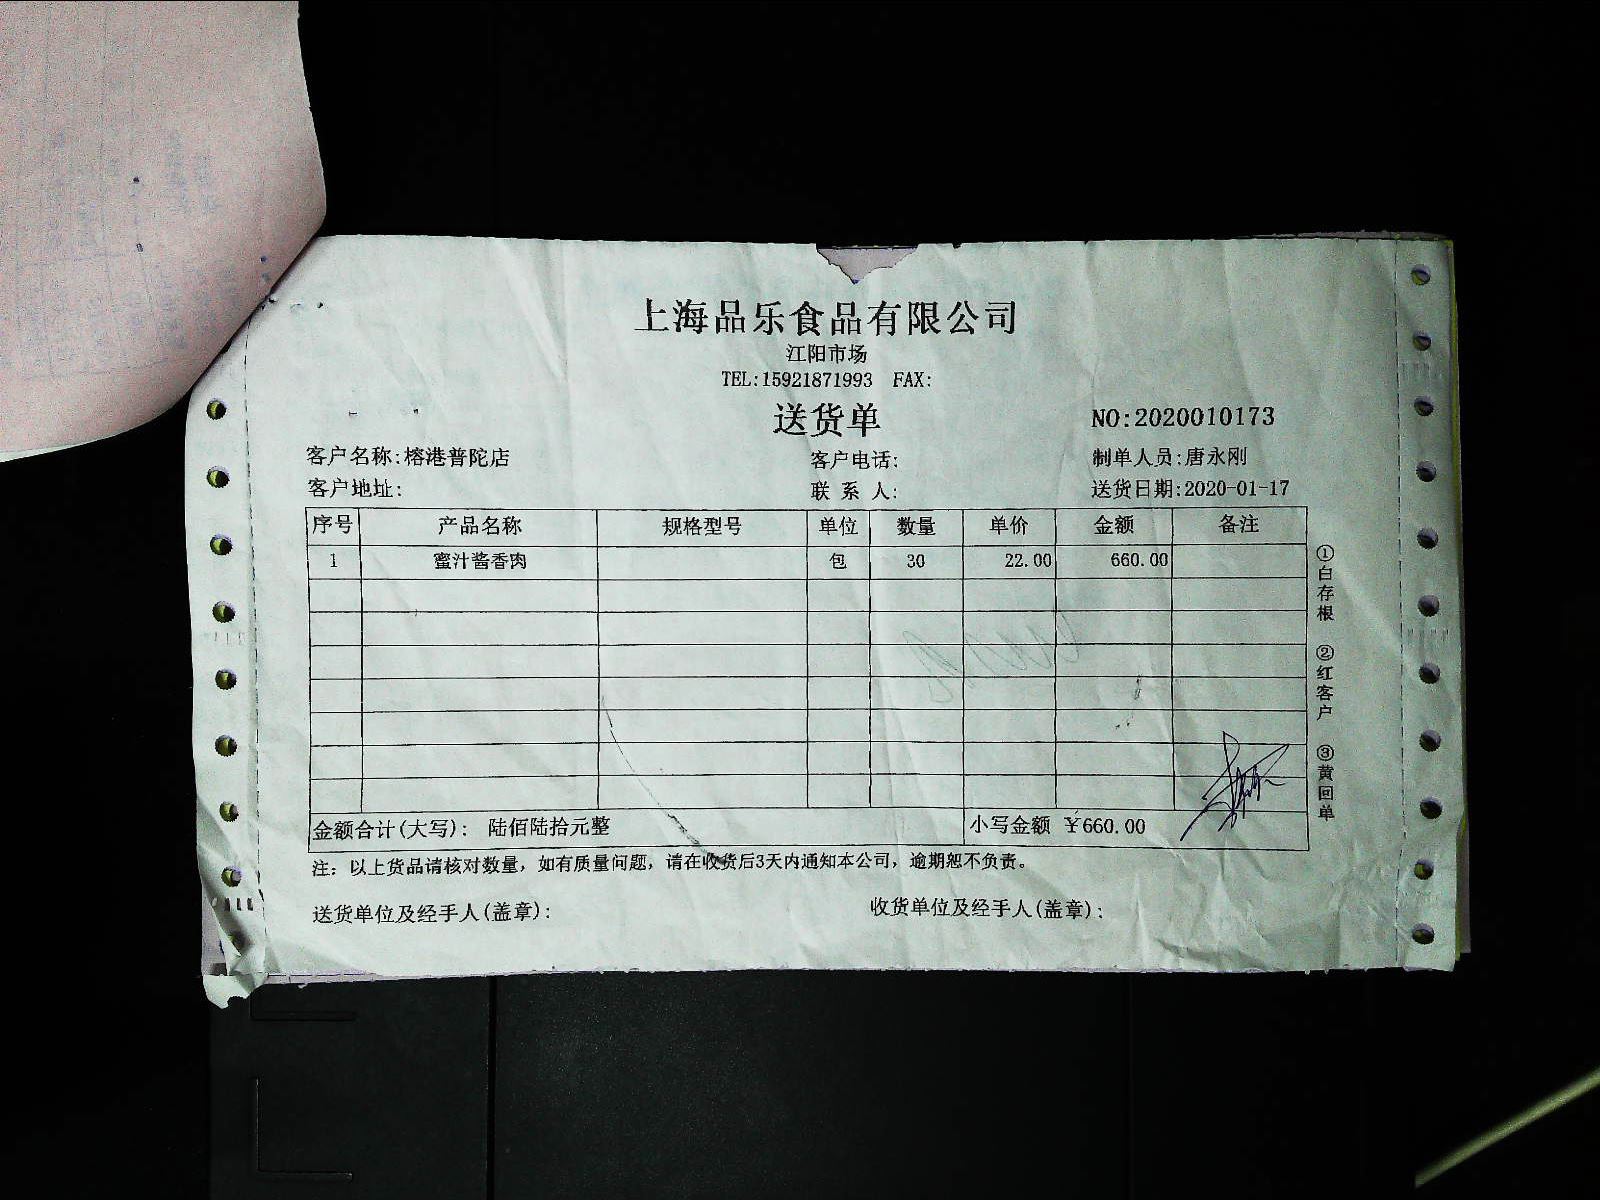 上海品乐食品有限公司
江阳市场
TEL:15921871993 FAX:
送货单 NO:2020010173
客户名称:榕港普陀店 客户电话: 制单人员:唐永刚
客户地址: 联 系 人: 送货日期:2020-01-17
序号 产品名称 规格型号 单位 数量 单价 金额 备注
1 蜜汁酱香肉 包 30 22.00 660.00
金额合计(大写): 陆佰陆拾元整 小写金额 ￥660.00
注: 以上货品请核对数量, 如有质量问题, 请在收货后3天内通知本公司, 逾期恕不负责。
送货单位及经手人(盖章): 收货单位及经手人(盖章):
①白存根 ②红客户 ③黄回单